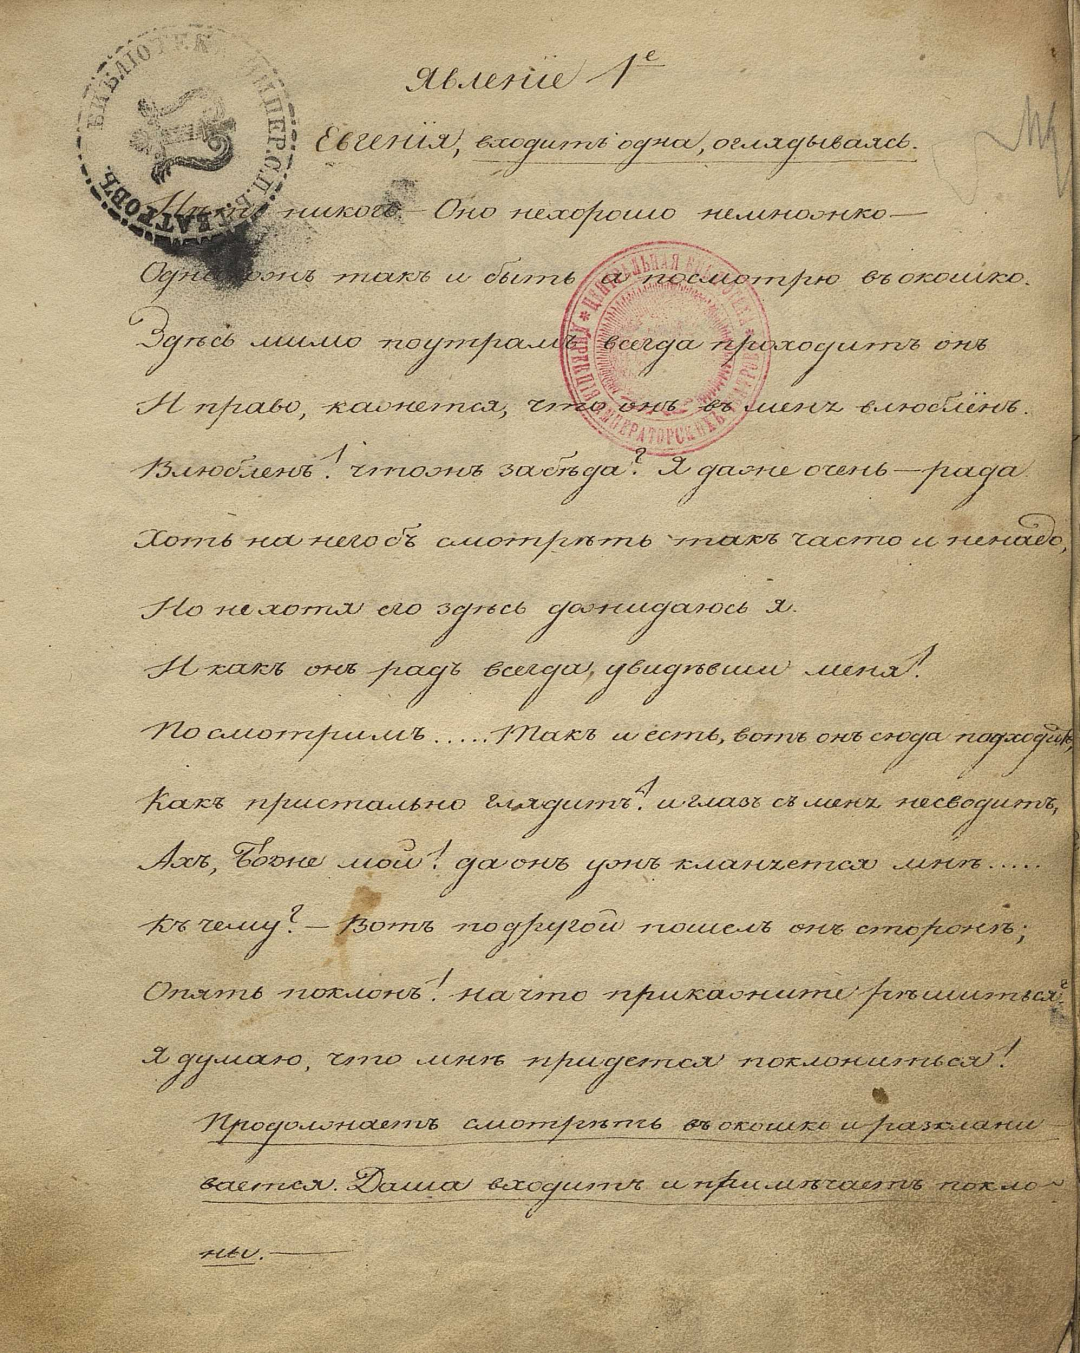 Явленіе 1е
Евгенія, входитъ одна, оглядываясь.
Нѣтъ никого. — Оно нехорошо немножко —
Однакожъ такъ и быть я посмотрю въ окошко.
Здѣсь мимо поутрамъ всегда проходитъ онъ
И право, кажется, что онъ въ меня влюблёнъ.
Влюбленъ! чтожъ за бѣда? Я даже очень — рада
Хоть на него бъ смотрѣть такъ часто и ненадо,
Но нехотя его здѣсь дожидаюсь я.
И какъ онъ радъ всегда, увидѣвши меня!
Посмотримъ..... Такъ и есть, вотъ онъ сюда подходитъ,
Какъ пристально глядитъ! и глазъ съ меня несводитъ,
Ахъ, Боже мой! да онъ ужъ кланяется мнѣ.....
Къ чему? — Вотъ подругой пошелъ онъ сторонѣ;
Опять поклонъ! на что прикажите рѣшиться?
Я думаю, что мнѣ придется поклониться!
Продолжаетъ смотрѣть въ окошко и раскланы-
вается. Даша входитъ и примѣчаетъ покло-
ны. —
БИБЛІОТЕКА ИМПЕР. С.П.Б. ТЕАТРОВЪ
ЦЕНТРАЛЬНАЯ БИБЛІОТЕКА
ДИРЕКЦІИ ИМПЕРАТОРСКИХЪ ТЕАТРОВЪ